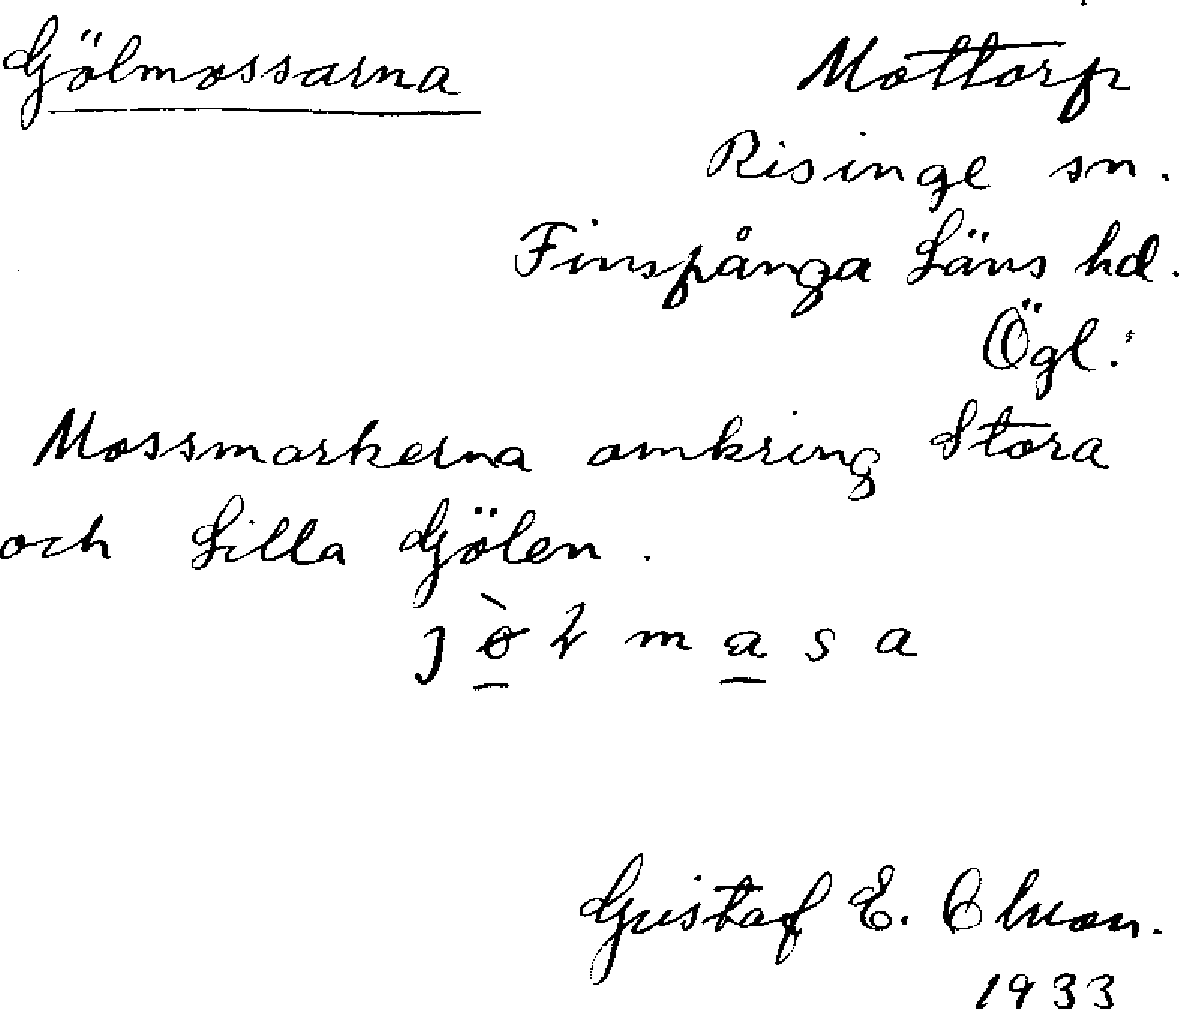 Gölmossarna
Mottorp
Risinge sn.
Finspånga Läns hd.
Ögl.
Mossmarkerna omkring Stora
och Lilla Gölen.
Gustaf E.
1933